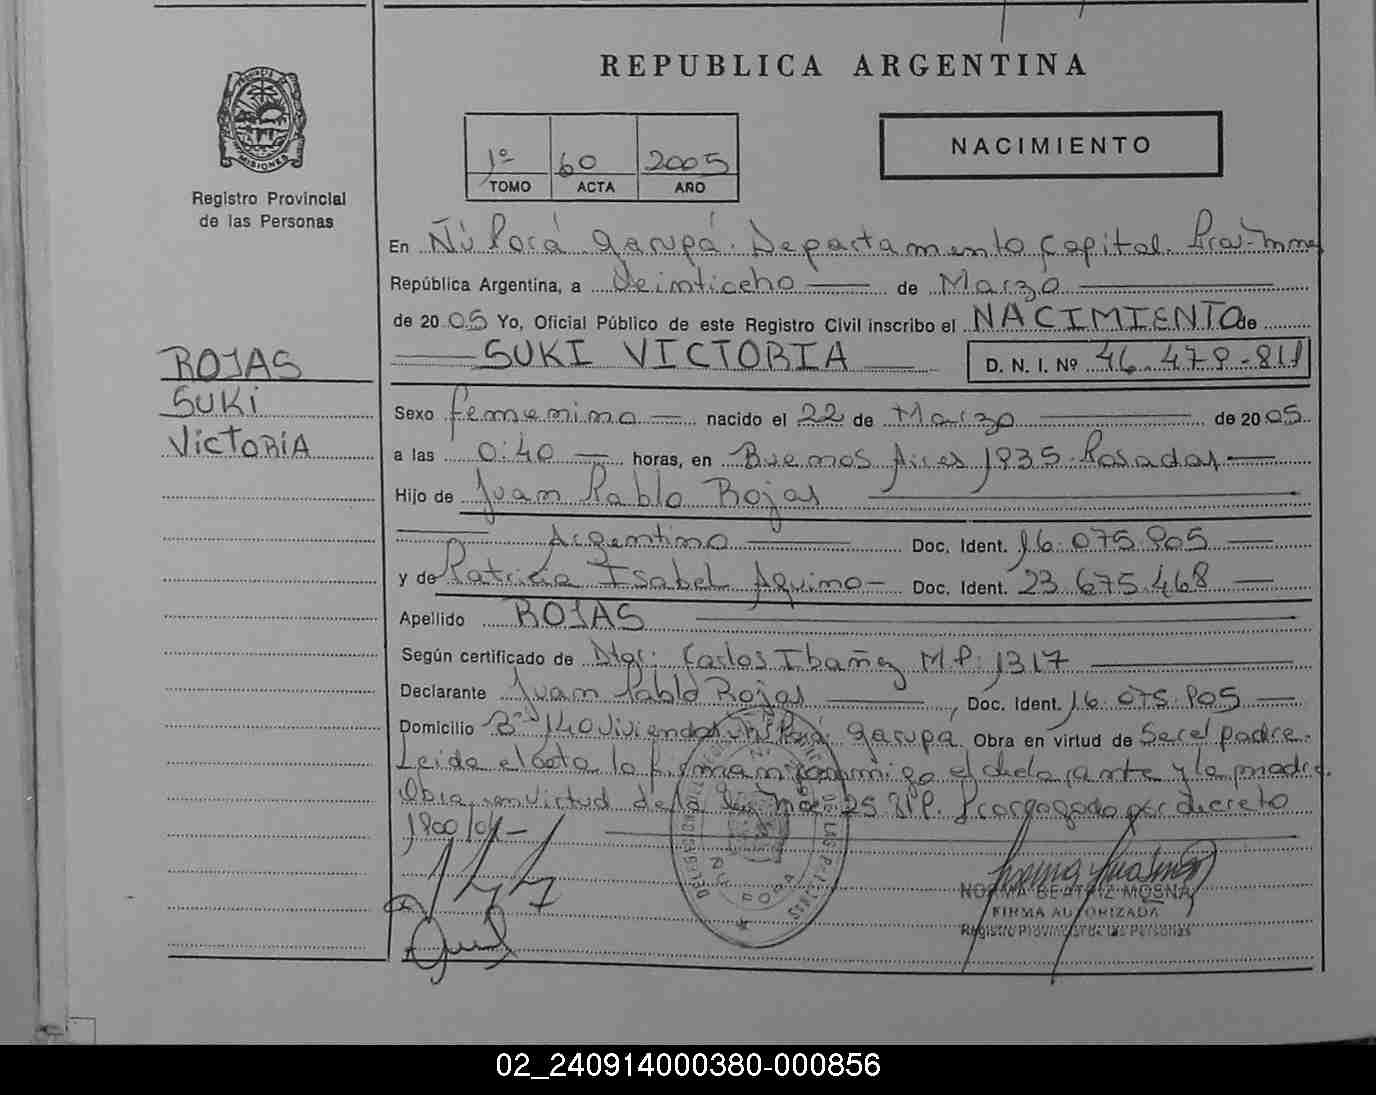 REPUBLICA ARGENTINA
MISIONES
Registro Provincial
de las Personas
1º 60 2005
TOMO ACTA AÑO
NACIMIENTO
En Ñú Porá Garupá. Departamento Capital.
República Argentina, a Veintiocho de Marzo
de 2005 Yo, Oficial Público de este Registro Civil inscribo el NACIMIENTO de
SUKI VICTORIA D. N. I. Nº 46.479.811
ROJAS
SUKI
VICTORIA
Sexo femenino nacido el 22 de Marzo de 2005
a las 0:40 horas, en Buenos Aires 1935 Posadas
Hijo de Juan Pablo Rojas
Argentino Doc. Ident. 16.075.905
y de Patricia Isabel Aquino Doc. Ident. 23.675.468
Apellido ROJAS
Según certificado de Carlos Ibañez M.P: 1317
Declarante Juan Pablo Rojas, Doc. Ident. 16.075.905
Domicilio Bº 140 Viviendas Ñú Porá Garupá Obra en virtud de Ser el padre.
Leida el acta la firman conmigo el declarante y la madre.
Obra en virtud de la ley Nº 25.819. Prorrogado por decreto
1900/04-
NORMA BEATRIZ MOSNA
FIRMA AUTORIZADA
Registro Provincial de las Personas
02_240914000380-000856